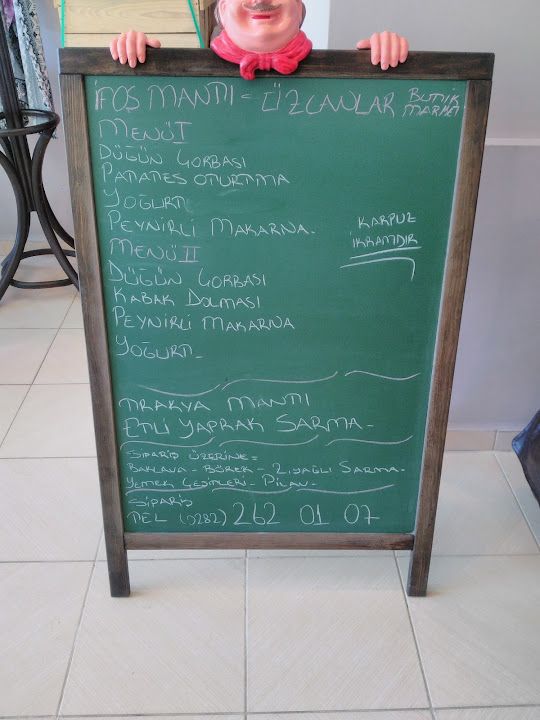 FOŞ MANTI = ÖZCANLAR BUTİK MARKET
MENÜ I
DÜĞÜN ÇORBASI
PATATES OTURTMA
YOĞURT
PEYNİRLİ MAKARNA-
KARPUZ
İKRAMDIR
MENÜ II
DÜĞÜN ÇORBASI
KABAK DOLMASI
PEYNİRLİ MAKARNA
YOĞURT-
TRAKYA MANTI
ETLİ YAPRAK SARMA-
SİPARİŞ ÜZERİNE=
BAKLAVA - BÖREK - Z.YAĞLI SARMA-
YEMEK ÇEŞİTLERİ - PİLAV-
SİPARİŞ
TEL (0282) 262 01 07